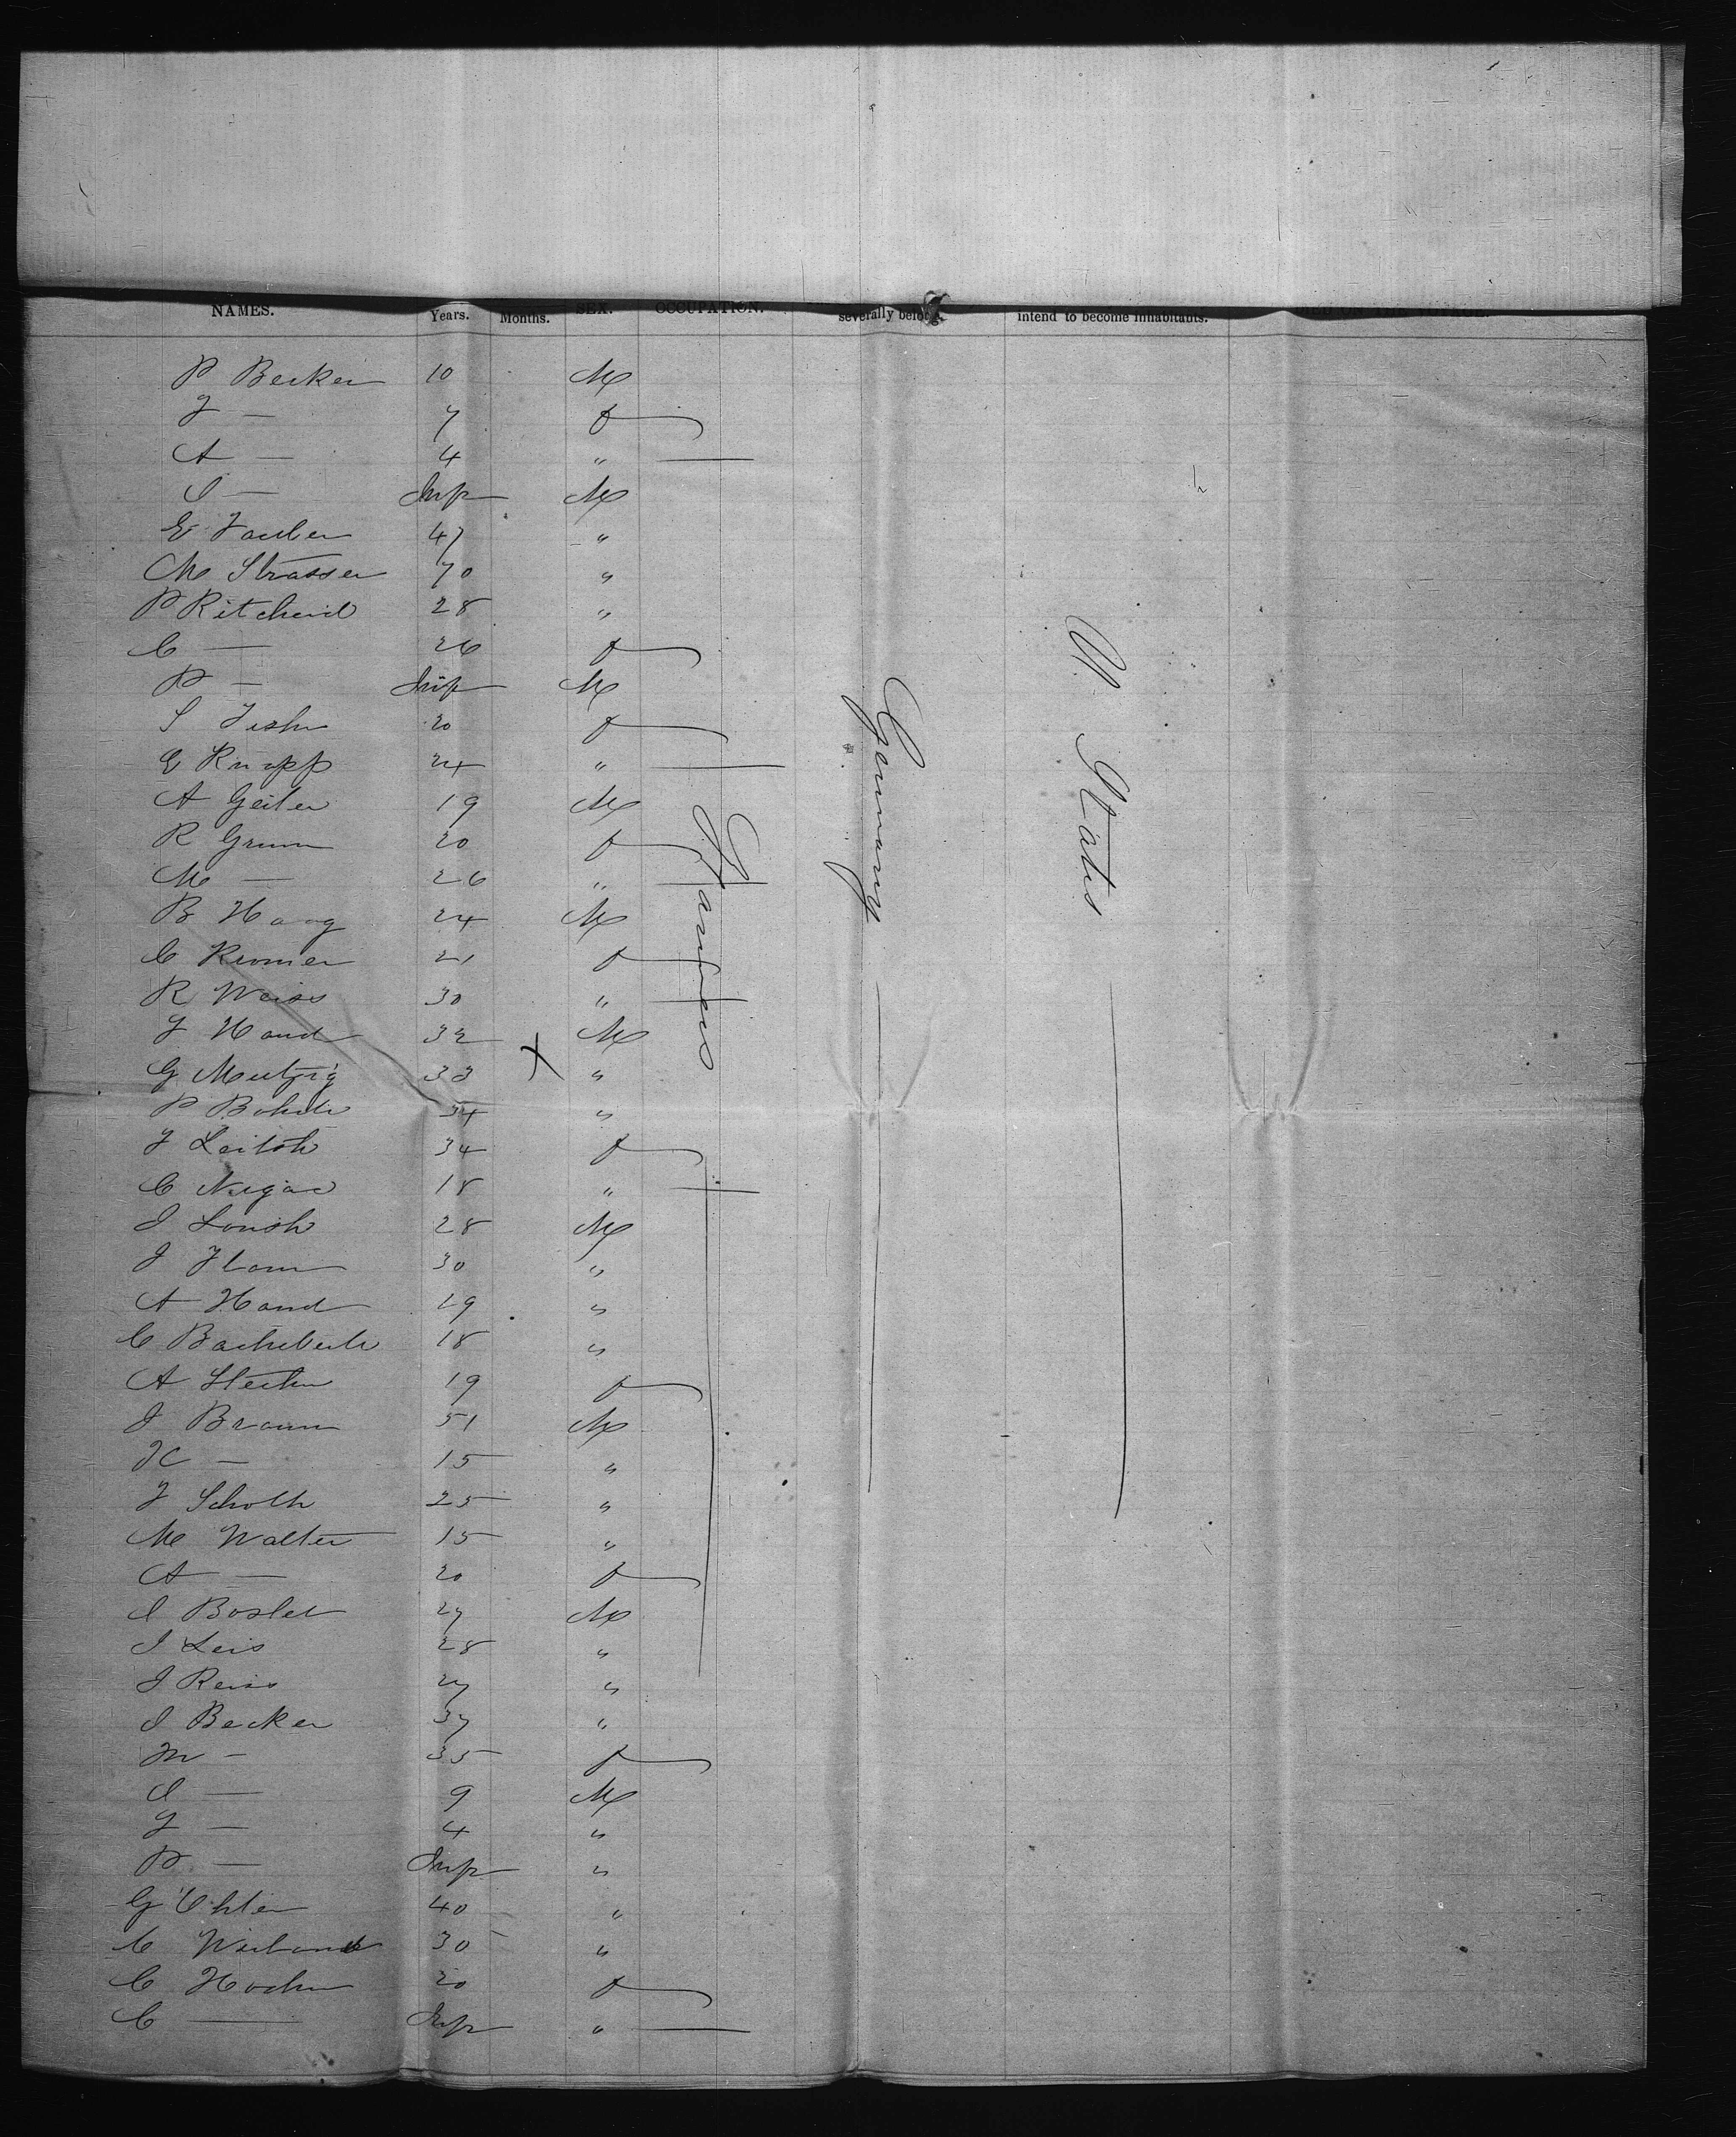 NAMES. Years. Months. SEX. OCCUPATION. severally belong. intend to become inhabitants.
P Becker 10 M
J — 7 f
A — 4 "
J — Inf M
E Fauber 47 "
M Strasser 70 "
P Ritcheid 28 "
C — 26 f
P — Inf M
S Fisher 20 f
E Knapp 24 "
A Geiler 19 M
R Grum 20 f
M — 26 "
B Haag 24 M
C Kromer 21 f
R Weiss 30 "
J Hand 32 M
G Metzig 33 "
P 34 "
J Leitsh 34 f
C 18 "
J Lonsh 28 M
J Flam 30 "
A Hand 19 "
C 18 "
A 19 f
J Braun 51 M
H — 15 "
J Scholh 25 "
M Walter 15 "
A — 20 f
J Boslet 27 M
J Leis 28 "
J Reiss 27 "
J Becker 37 "
M — 35 f
J — 9 M
J — 4 "
P — Inf "
G Ehler 40 "
C Weiland 30 "
C 20 f
C — Inf "
Farmers
Germany
U States